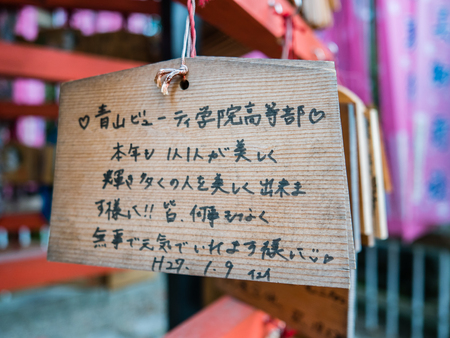 ♡青山ビューティ学院高等部♡
本年も 1人1人が美しく
輝き多くの人を美しく出来ま
す様に!! 皆、何事もなく
無事で元気でいれます様に♡
H29.1.9